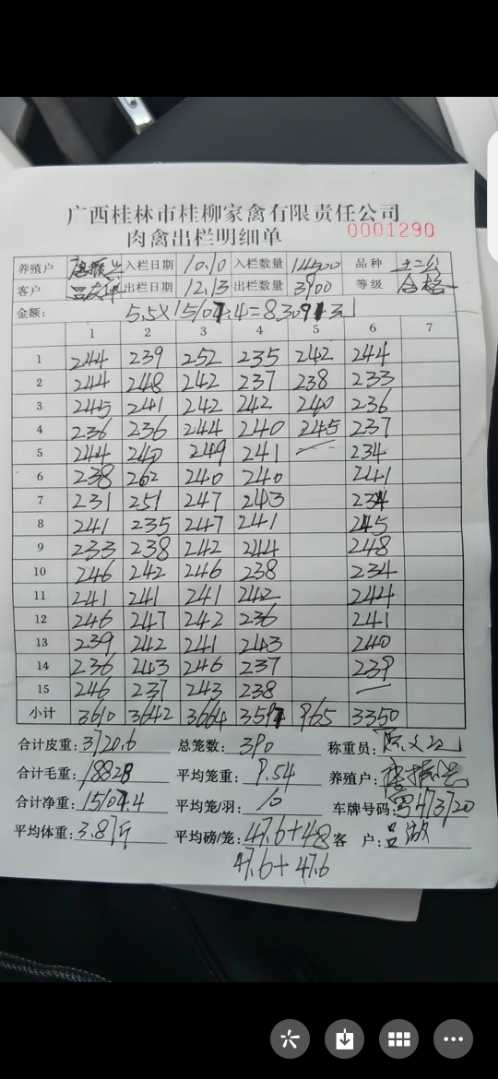 广西桂林市桂柳家禽有限责任公司
肉禽出栏明细单 0001290
养殖户 入栏日期 10.10 入栏数量 14500 品种 土二公
客户 出栏日期 12.13 出栏数量 3900 等级 合格
金额: 5.5×15107.4=83091元
1 2 3 4 5 6 7
1 244 239 252 235 242 244
2 244 248 242 237 238 233
3 245 241 242 242 240 236
4 236 236 244 240 245 237
5 244 240 249 241 234
6 238 262 240 240 241
7 231 251 247 243 234
8 241 235 247 241 245
9 233 238 242 244 248
10 246 242 246 238 234
11 241 241 241 242 244
12 246 247 242 236 241
13 239 242 241 243 240
14 236 243 246 237 239
15 246 237 243 238
小计 3610 3642 3664 3597 965 3350
合计皮重: 3720.6 总笼数: 390 称重员:
合计毛重: 18828 平均笼重: 9.54 养殖户:
合计净重: 15107.4 平均笼/羽: 10 车牌号码:
平均体重: 3.87斤 平均磅/笼: 47.6+48 客 户:
47.6+47.6